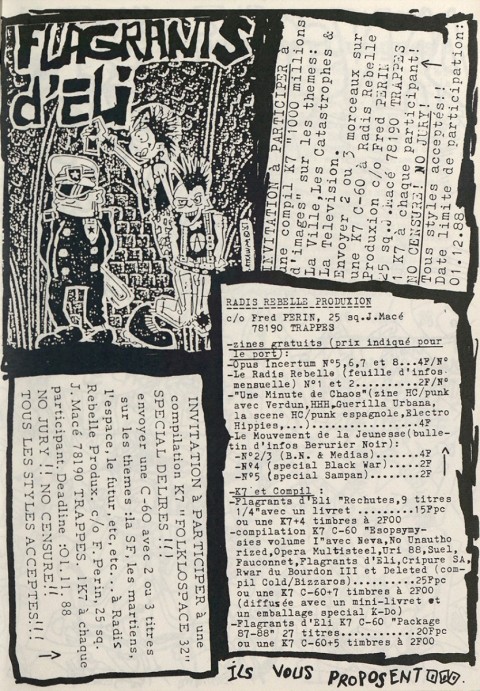 FLAGRANTS
d'ELi
INVITATION à PARTICIPER à
une compil K7 "1000 millions
d'images" sur les themes:
La Ville,Les Catastrophes &
La Television.
Envoyer 2 ou 3 morceeaux sur
une K7 C-60 à Radis Rebelle
Produxion c/o Fred PERIN
25 sq.J.Macé 78190 TRAPPES
1 K7 à chaque participant!
NO CENSURE! NO JURY!
Tous styles acceptés!!!
Date limite de participation:
01.12.88
RADIS REBELLE PRODUXION
c/o Fred PERIN, 25 sq.J.Macé
78190 TRAPPES
-zines gratuits (prix indiqué pour
le port):
-Opus Incertum N°5,6,7 et 8...4F/N°
-Le Radis Rebelle (feuille d'infos
mensuelle) N°1 et 2..........2F/N°
-"Une Minute de Chaos"(zine HC/punk
avec Verdun,HHH,Guerilla Urbana,
la scene HC/punk espagnole,Electro
Hippies,...)................4F
-Le Mouvement de la Jeunesse(bulle-
tin d'infos Berurier Noir):
-N°2/3 (B.N. & Medias).....4F
-N°4 (special Black War)....2F
-N°5 (special Sampan).......2F
-K7 et Compil :
-Flagrants d'Eli "Rechutes,9 titres
1/4"avec un livret .........15Fpc
ou une K7+4 timbres à 2F00
-compilation K7 C-60 "Esopsymy-
sies volume I"avec Neva,No Unautho
rized,Opera Multisteel,Uri 88,Suel,
Fauconnet,Flagrants d'Eli,Cripure SA,
Rwar du Bourdon III et Deleted (com-
pil Cold/Bizzaros)..........25Fpc
ou une K7 C-60+7 timbres à 2F00
(diffusée avec un mini-livret et
un emballage special K-Do)
-Flagrants d'Eli K7 C-60 "Package
87-88" 27 titres............20Fpc
ou une K7 C-60+5 timbres à 2F00
INVITATION à PARTICIPER à une
compilation K7 "FOLKLOSPACE 32"
SPECIAL DELIRES !!!
envoyer une C-60 avec 2 ou 3 titres
sur les themes :la SF, les martiens,
l'espace, le futur, etc, etc... à Radis
Rebelle Produx. c/o F. Perin, 25 sq.
J. Macé 78190 TRAPPES. 1 K7 à chaque
participant, Deadline :01. 11. 88
NO JURY !! NO CENSURE!!
TOUS LES STYLES ACCEPTES!!!
iLS VOUS PROPOSENT